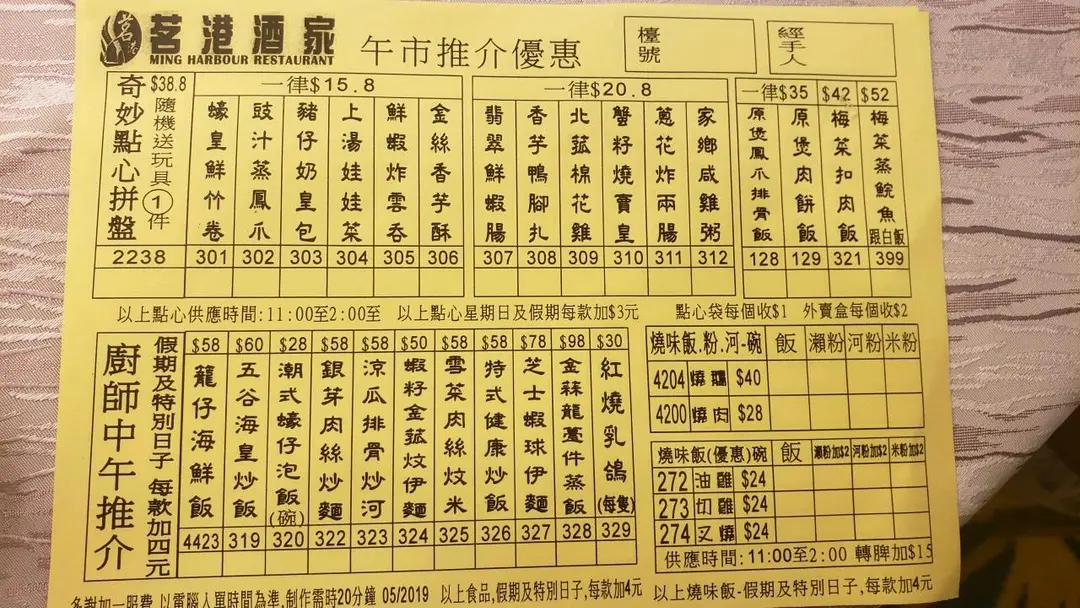 茗港
茗港酒家
MING HARBOUR RESTAURANT
午市推介優惠
檯號
經手人
奇妙點心拼盤
$38.8
隨機送玩具①件
2238
一律$15.8
蠔皇鮮竹卷
豉汁蒸鳳爪
豬仔奶皇包
上湯娃娃菜
鮮蝦炸雲吞
金絲香芋酥
301 302 303 304 305 306
一律$20.8
翡翠鮮蝦腸
香芋鴨腳扎
北菰棉花雞
蟹籽燒賣皇
蔥花炸兩腸
家鄉咸雞粥
307 308 309 310 311 312
一律$35 $42 $52
原煲鳳爪排骨飯
原煲肉餅飯
梅菜扣肉飯
梅菜蒸鯇魚跟白飯
128 129 321 399
以上點心供應時間:11:00至2:00至 以上點心星期日及假期每款加$3元 點心袋每個收$1 外賣盒每個收$2
廚師中午推介
假期及特別日子 每款加四元
$58 $60 $28 $58 $58 $50 $58 $58 $78 $98 $30
籠仔海鮮飯
五谷海皇炒飯
潮式蠔仔泡飯(碗)
銀芽肉絲炒麵
涼瓜排骨炒河
蝦籽金菰炆伊麵
雪菜肉絲炆米
特式健康炒飯
芝士蝦球伊麵
金菻龍躉件蒸飯
紅燒乳鴿(每隻)
4423 319 320 322 323 324 325 326 327 328 329
燒味飯.粉.河-碗 飯 瀨粉 河粉 米粉
4204 燒鵝 $40
4200 燒肉 $28
燒味飯(優惠)碗 飯 瀨粉加$2 河粉加$2 米粉加$2
272 油雞 $24
273 切雞 $24
274 叉燒 $24
供應時間:11:00至2:00 轉脾加$15
多謝加一服費,以電腦人單時間為準,制作需時20分鐘 05/2019 以上食品,假期及特別日子,每款加4元 以上燒味飯-假期及特別日子,每款加4元